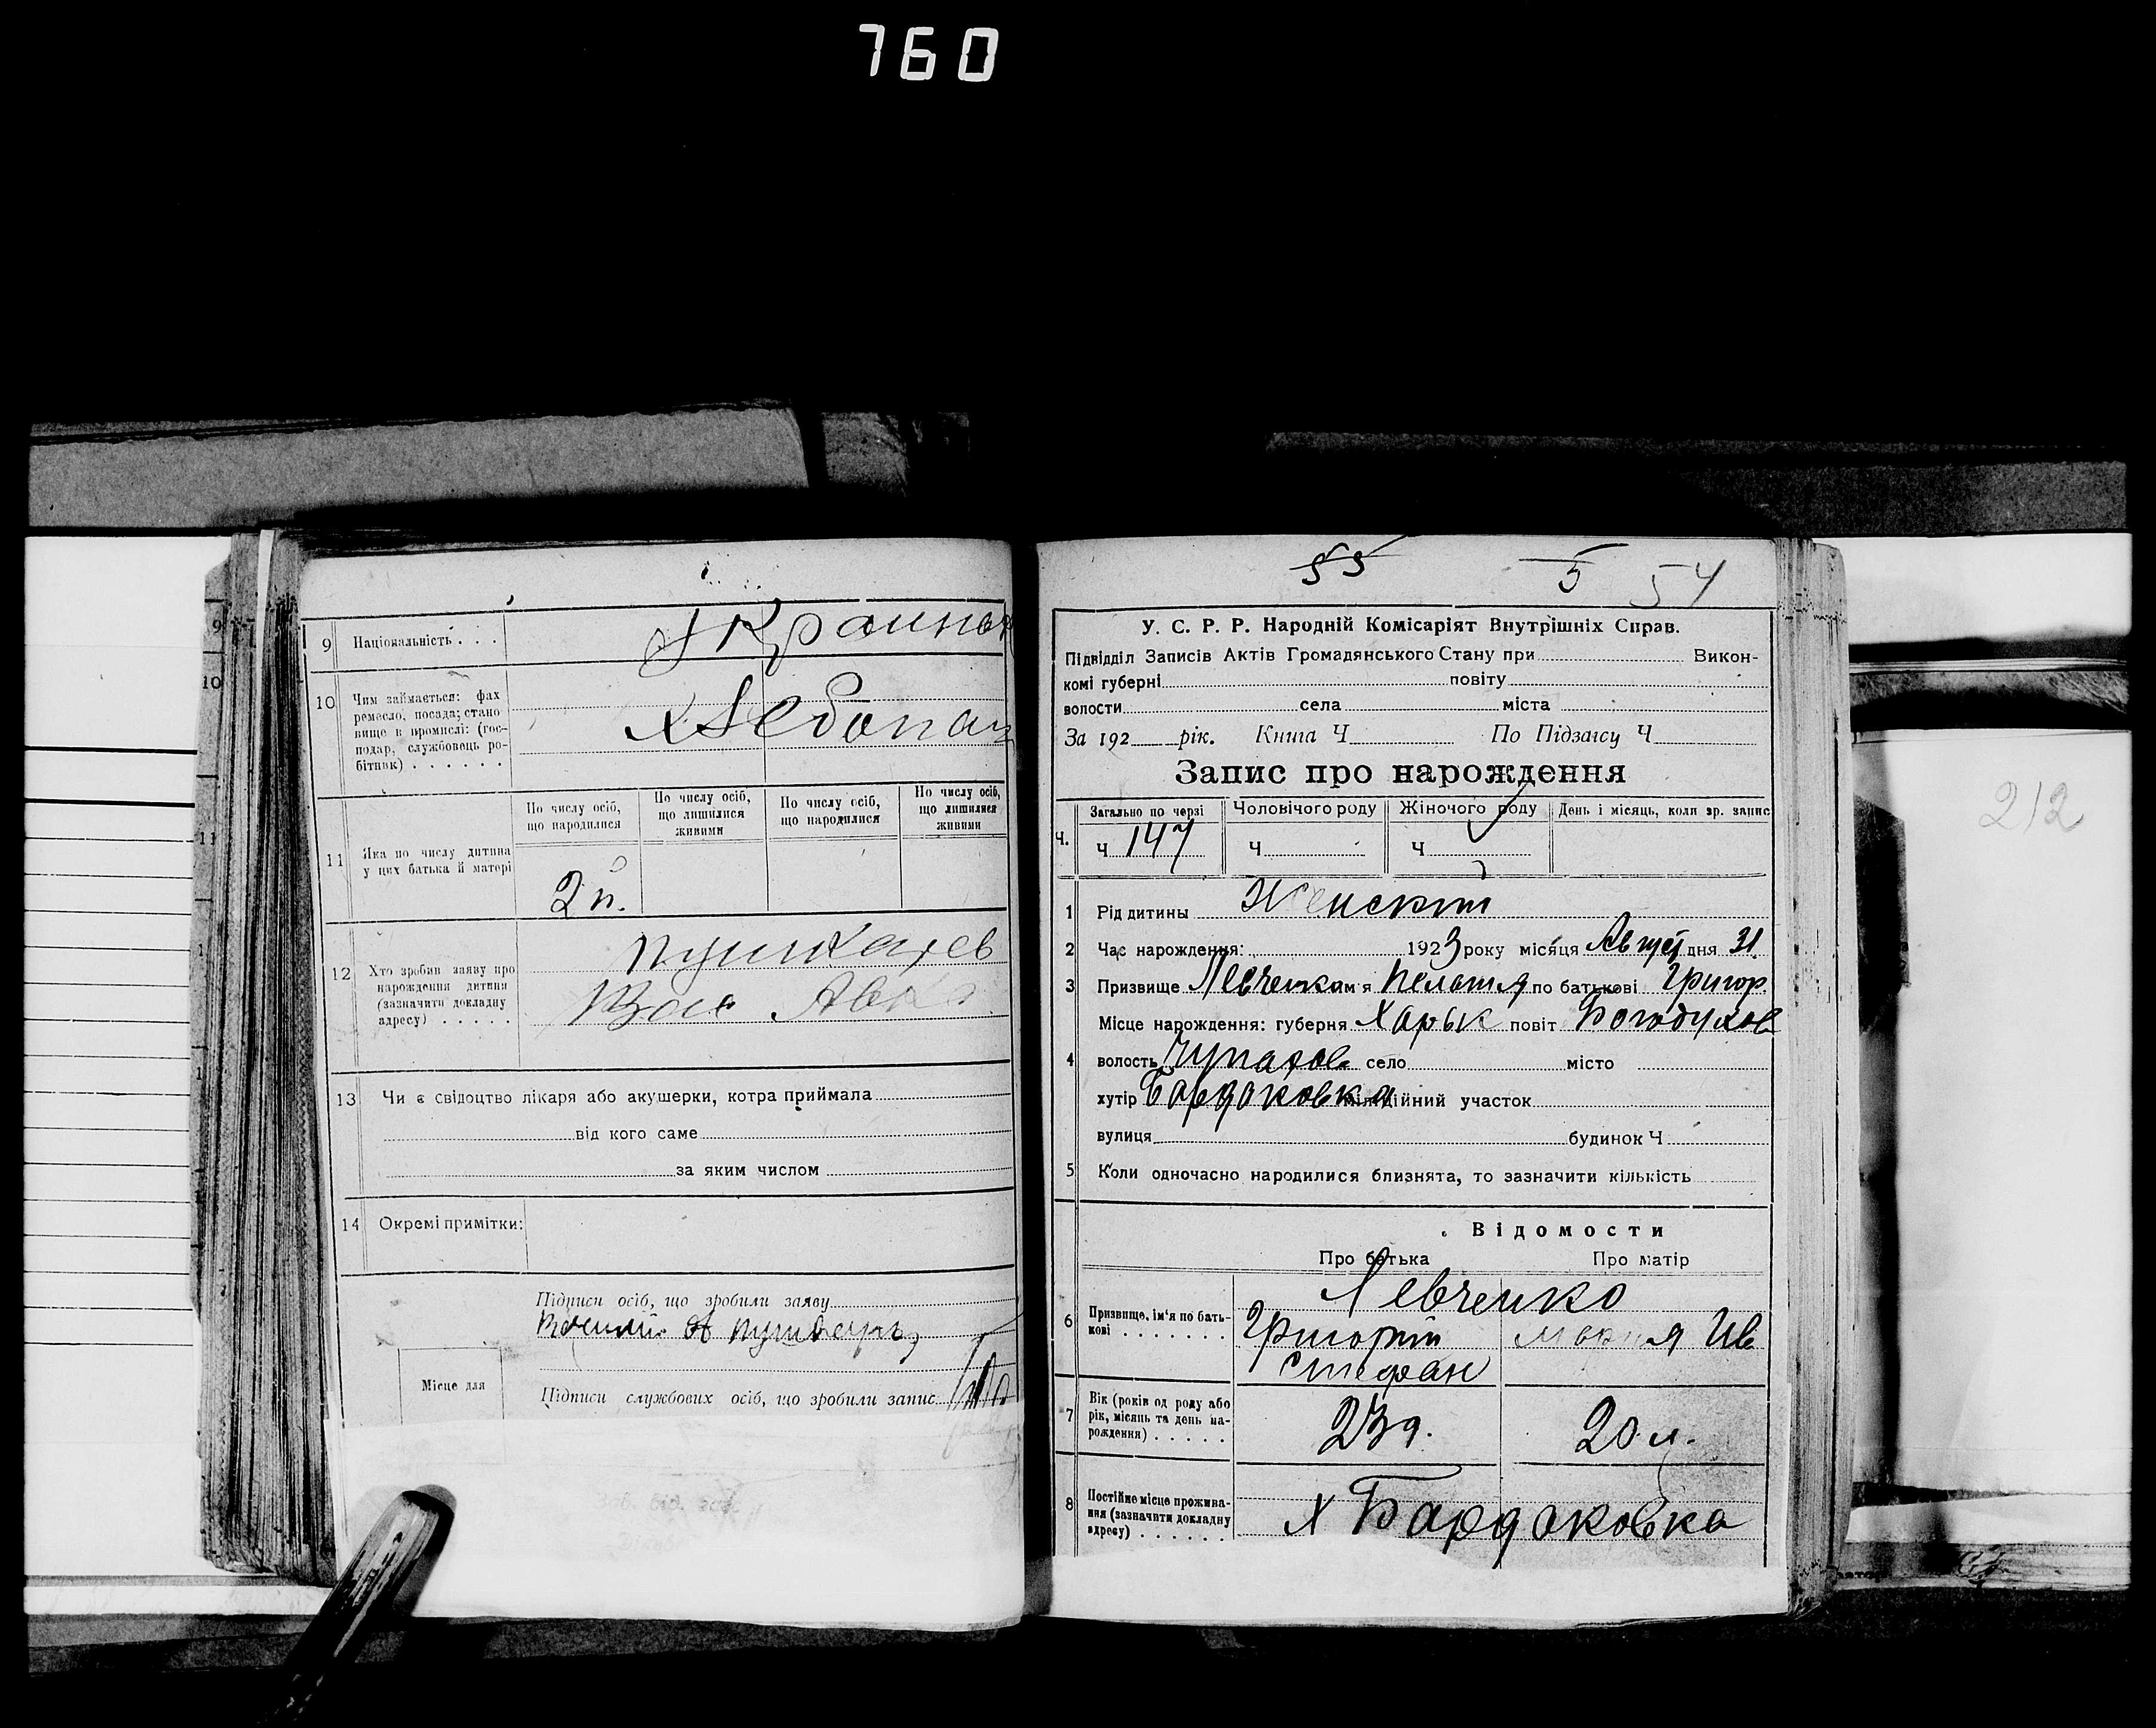 760
9 Національність . . .
Украин
10 Чим займається: фах
ремесло, посада; стано
вище в промислі: (гос-
подар, службовець ро-
бітник) . . . . . .
Хлебопаш
11 Яка по числу дитина
у цих батька й матері
По числу осіб,
що народилися
По числу осіб,
що лишилися
живими
По числу осіб,
що народилися
По числу осіб,
що лишилися
живими
2й.
12 Хто зробив заяву про
нарождення дитини
(зазначити докладну
адресу) . . . . .
13 Чи є свідоцтво лікаря або акушерки, котра приймала
від кого саме
за яким числом
14 Окремі примітки:
Підписи осіб, що зробили заяву
Місце для
Підписи службових осіб, що зробили запис
55 5 54
У. С. Р. Р. Народній Комісаріят Внутрішніх Справ.
Підвідділ Записів Актів Громадянського Стану при Викон-
комі губерні повіту
волости села міста
За 192 рік. Книга Ч По Підзагсу Ч
Запис про нарождення
Ч. Загально по черзі Чоловічого роду Жіночого роду День і місяць, коли зр. запис
Ч 147 Ч Ч
1 Рід дитини Женский
2 Час нарождення: 1923 року місяця Август дня 31.
3 Призвище Левченко ім'я Пелагия по батькові Григор
Місце нарождення: губерня Харьк повіт Богодухов
4 волость Чупахов село місто
хутір Бардаковка міліційний участок
вулиця будинок Ч
5 Коли одночасно народилися близнята, то зазначити кількість
Відомости
Про батька Про матір
6 Призвище, ім'я по бать-
кові . . . . . . .
Левченко
Григорий Мария Ив
Стефан
7 Вік (років од роду або
рік, місяць та день на-
рождення) . . . . .
23 20
8 Постійне місце прожива-
ння (зазначити докладну
адресу) . . . . . .
х Бардаковка
212